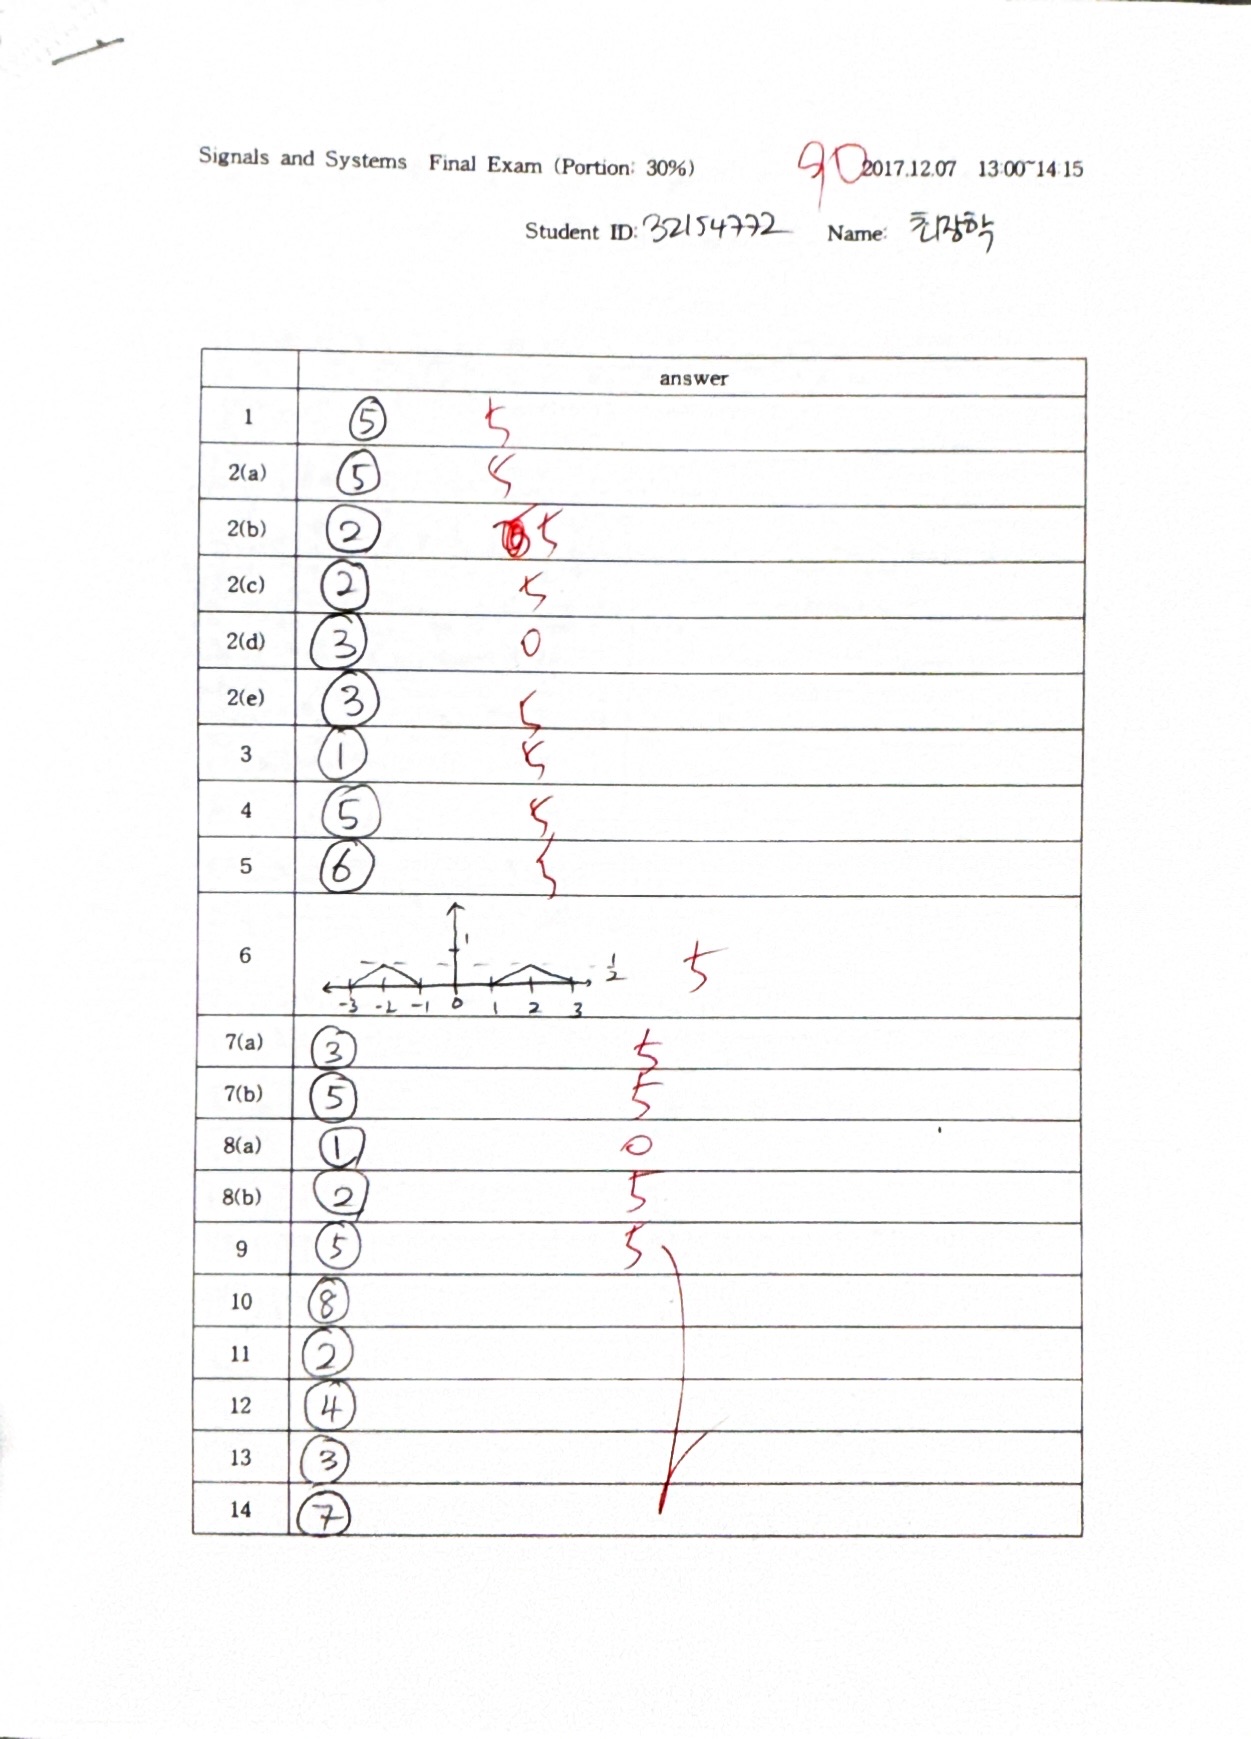 Signals and Systems Final Exam (Portion: 30%) 90 2017.12.07 13:00~14:15
Student ID: 32154772 Name: 최광학
answer
1 ⑤ 5
2(a) ⑤ 5
2(b) ② 5
2(c) ② 5
2(d) ③ 0
2(e) ③ 5
3 ① 5
4 ⑤ 5
5 ⑥ 5
6 1 1/2 5
-3 -2 -1 0 1 2 3
7(a) ③ 5
7(b) ⑤ 5
8(a) ① 0
8(b) ② 5
9 ⑤ 5
10 ⑧
11 ②
12 ④
13 ③
14 ⑦